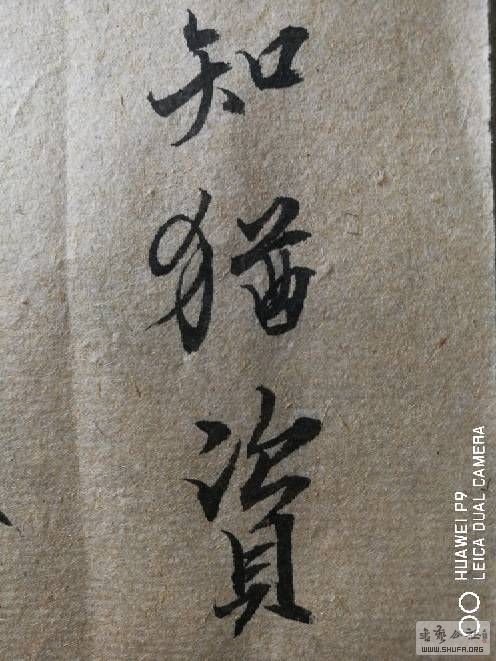 知猶資
HUAWEI P9
LEICA DUAL CAMERA
WWW.SHUFA.ORG